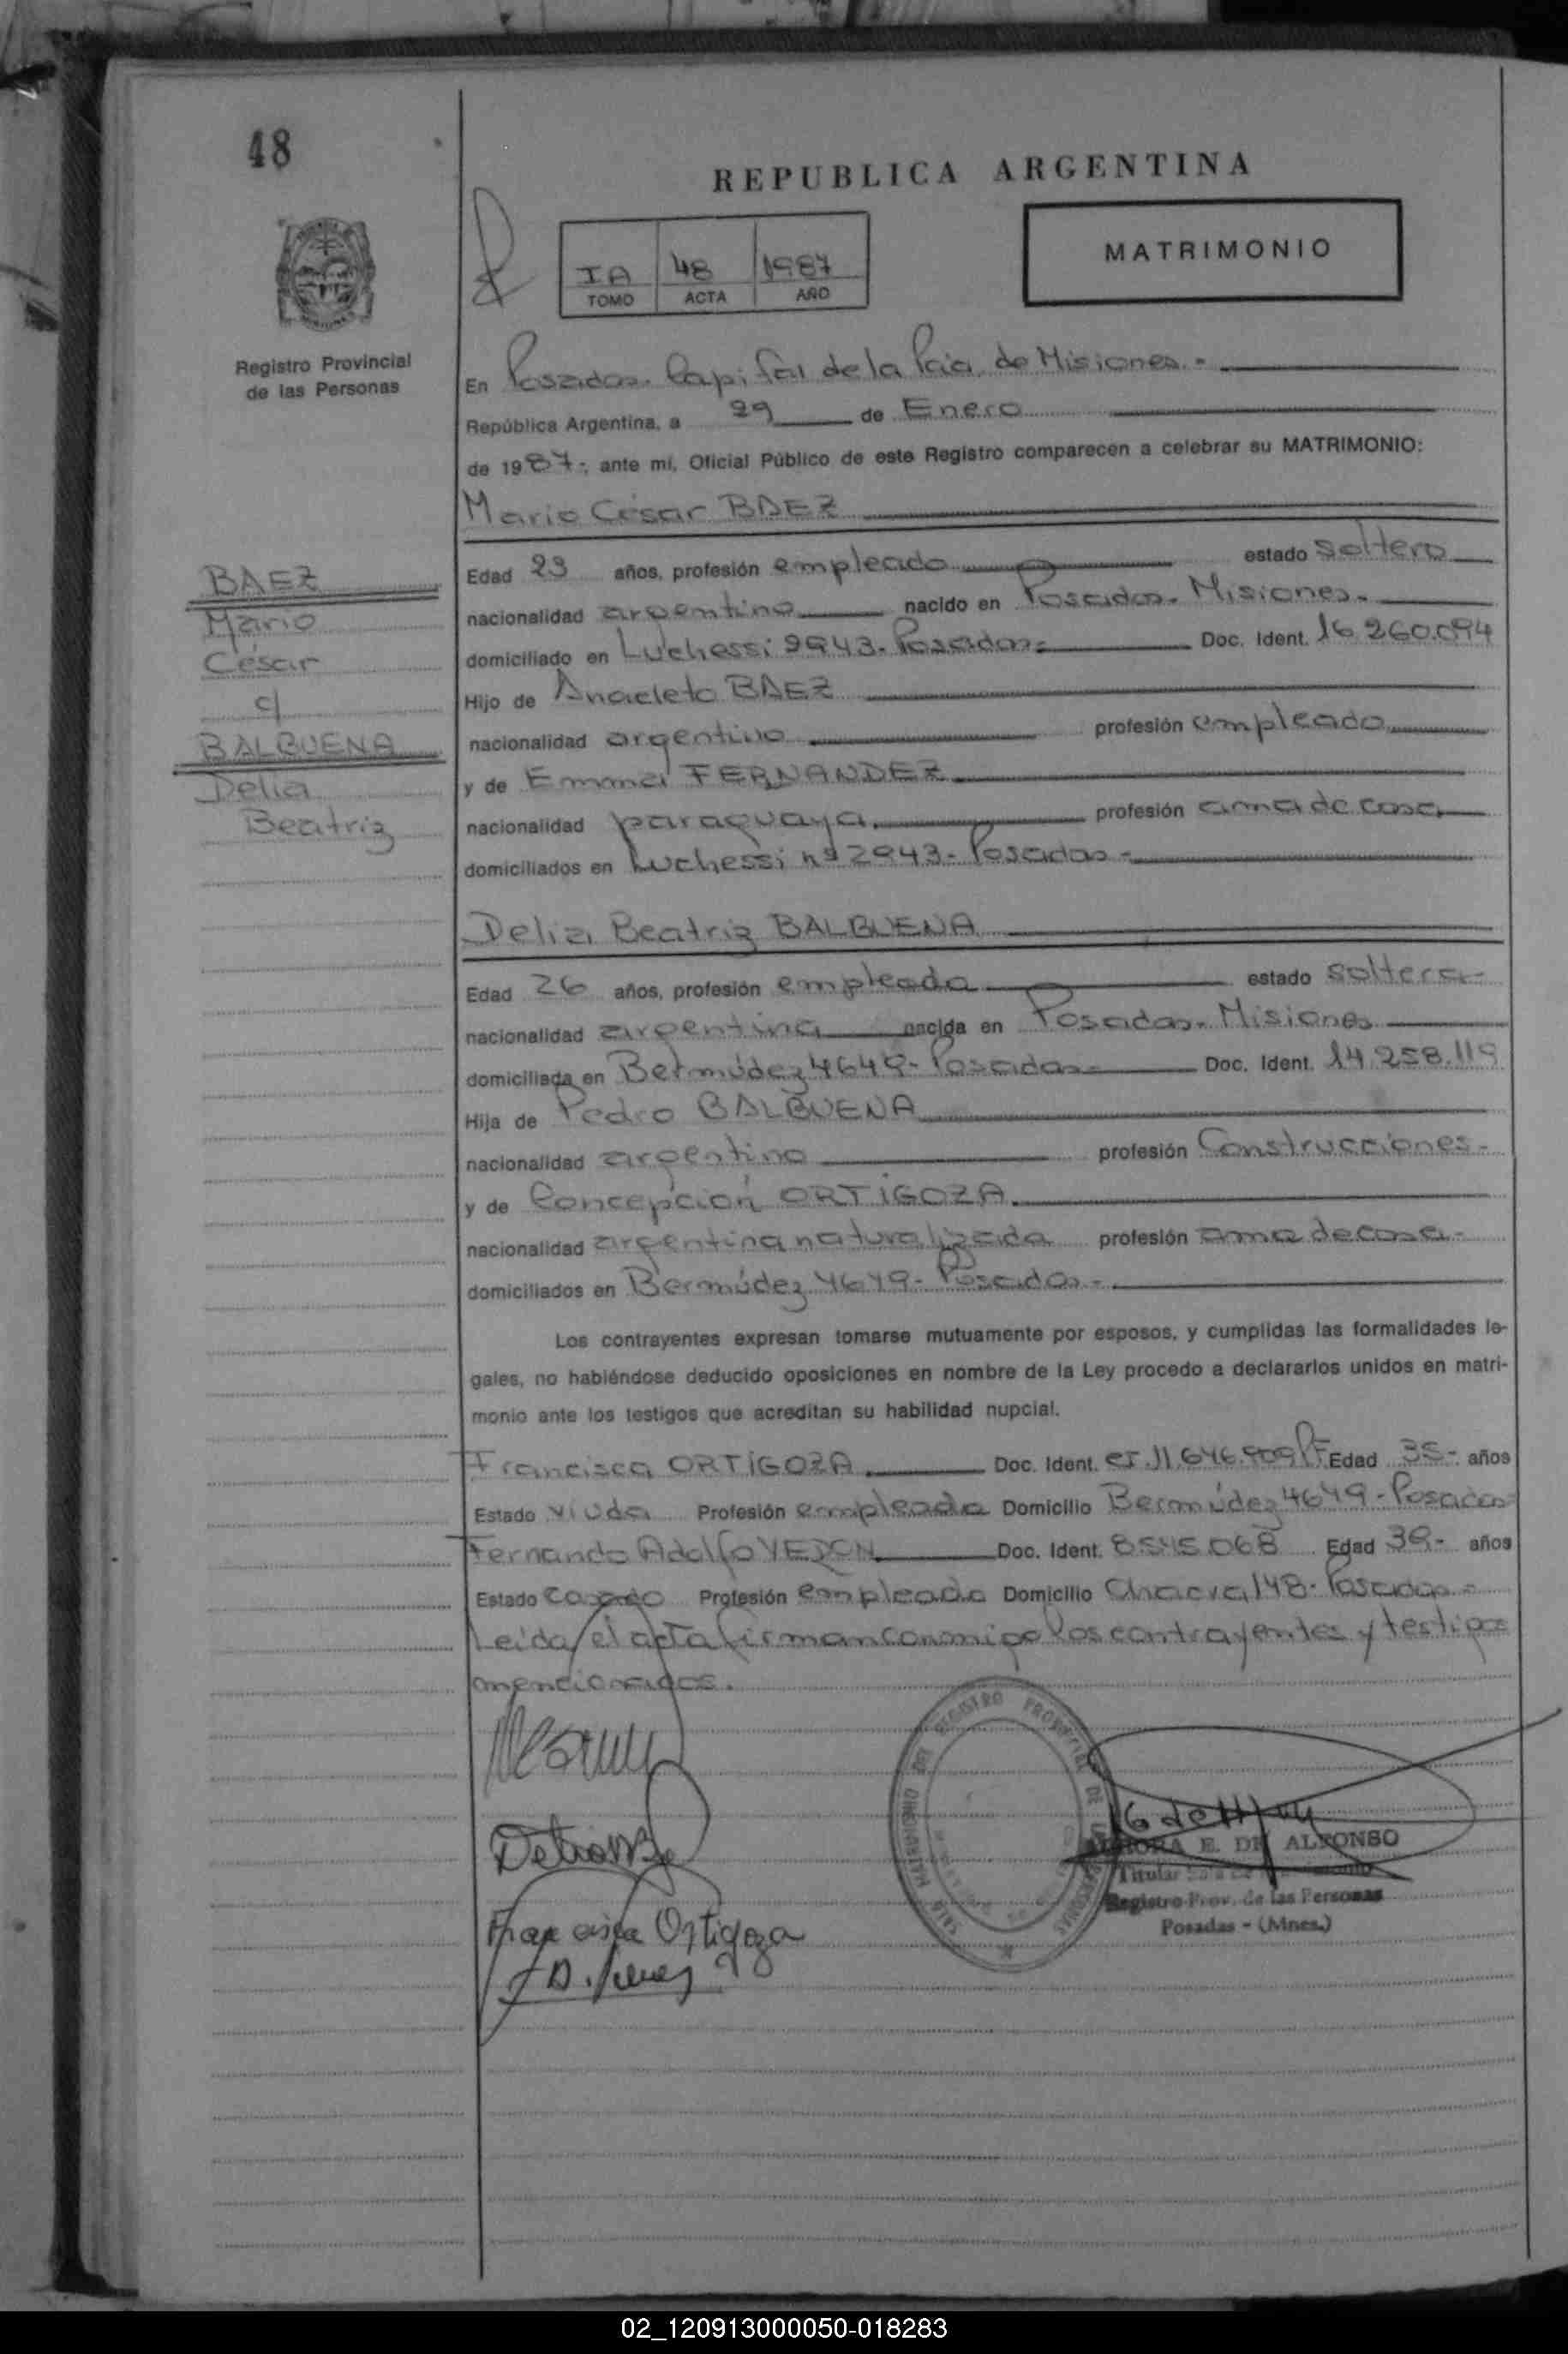 48
REPUBLICA ARGENTINA
IA 48 1987
TOMO ACTA AÑO
MATRIMONIO
Registro Provincial
de las Personas
En Posadas. Capital de la Pcia. de Misiones.-
República Argentina, a 29 de Enero
de 1987.- ante mi, Oficial Público de este Registro comparecen a celebrar su MATRIMONIO:
Mario César BAEZ
BAEZ
Mario
César
c/
BALBUENA
Delia
Beatriz
Edad 23 años, profesión empleado estado soltero
nacionalidad argentino nacido en Posadas. Misiones.
domiciliado en Luchessi 2943. Posadas.- Doc. Ident. 16.260.094
Hijo de Anacleto BAEZ
nacionalidad argentino profesión empleado
y de Emma FERNANDEZ
nacionalidad paraguaya. profesión ama de casa
domiciliados en Luchessi nº 2943- Posadas-
Delia Beatriz BALBUENA
Edad 26 años, profesión empleada estado soltera-
nacionalidad argentina nacida en Posadas. Misiones
domiciliada en Bermúdez 4649- Posadas- Doc. Ident. 14.258.119
Hija de Pedro BALBUENA
nacionalidad argentino profesión Construcciones-
y de Concepción ORTIGOZA.
nacionalidad argentina naturalizada profesión ama de casa-
domiciliados en Bermúdez 4649- Posadas-
Los contrayentes expresan tomarse mutuamente por esposos, y cumplidas las formalidades le-
gales, no habiéndose deducido oposiciones en nombre de la Ley procedo a declararlos unidos en matri-
monio ante los testigos que acreditan su habilidad nupcial.
Francisca ORTIGOZA Doc. Ident. Edad 35- años
Estado viuda Profesión empleada Domicilio Bermúdez 4649- Posadas-
Fernando Adolfo Doc. Ident. 8.545.068 Edad años
Estado casado Profesión empleado Domicilio Chacra 148- Posadas-
Leida el acta firman conmigo los contrayentes y testigos
mencionados.
REGISTRO PROVINCIAL DE LAS PERSONAS
E. DE ALFONSO
Titular
Francisca Ortigoza
Registro Prov. de las Personas
Posadas - (Mnes.)
02_120913000050-018283